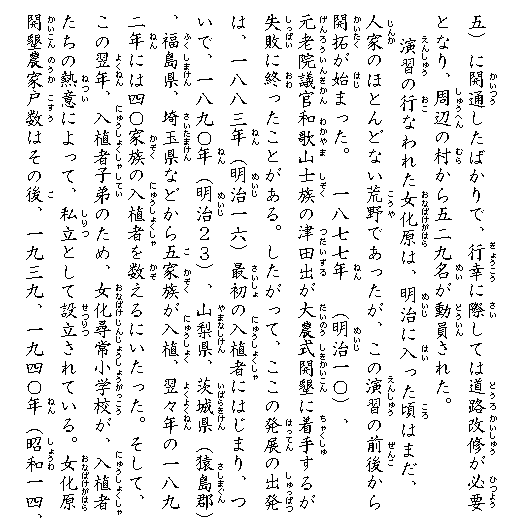 五）に開通したばかりで、行幸に際しては道路改修が必要
となり、周辺の村から五二九名が動員された。
演習の行なわれた女化原は、明治に入った頃はまだ、
人家のほとんどない荒野であったが、この演習の前後から
開拓が始まった。　一八七七年　（明治一〇）、
元老院議官和歌山士族の津田出が大農式開墾に着手するが
失敗に終ったことがある。したがって、ここの発展の出発
は、一八八三年（明治一六）最初の入植者にはじまり、つ
いで、一八九〇年（明治２３）、山梨県、茨城県（猿島郡）
、福島県、埼玉県などから五家族が入植、翌々年の一八九
二年には四〇家族の入植者を数えるにいたった。そして、
この翌年、入植者子弟のため、女化尋常小学校が、入植者
たちの熱意によって、私立として設立されている。女化原
開墾農家戸数はその後、一九三九、一九四〇年（昭和一四、